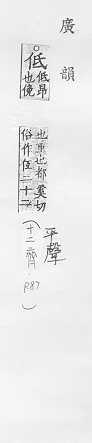 廣韻
低 低昂
也俛
也垂也都奚切
俗作仾二十二
平聲
(十二齊 P87)